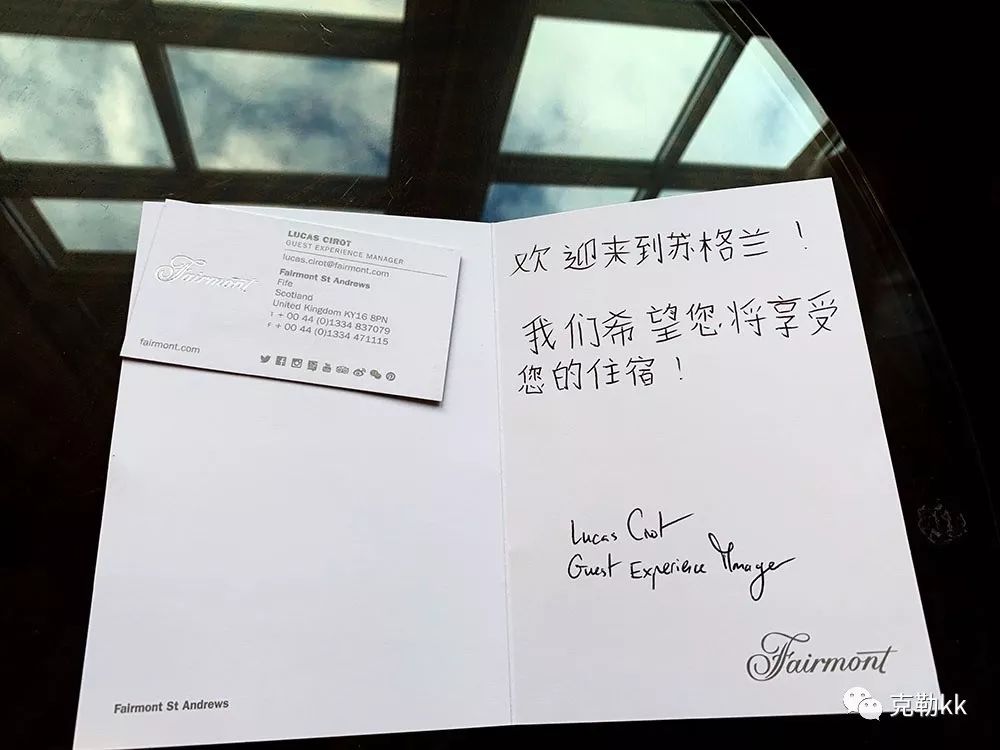 LUCAS CIROT
GUEST EXPERIENCE MANAGER
lucas.cirot@fairmont.com
Fairmont St Andrews
Fife
Scotland
United Kingdom KY16 8PN
T + 00 44 (0)1334 837079
F + 00 44 (0)1334 471115
Fairmont
fairmont.com
欢迎来到苏格兰！
我们希望您将享受
您的住宿！
Lucas Cirot
Guest Experience Manager
Fairmont
Fairmont St Andrews
克勒kk